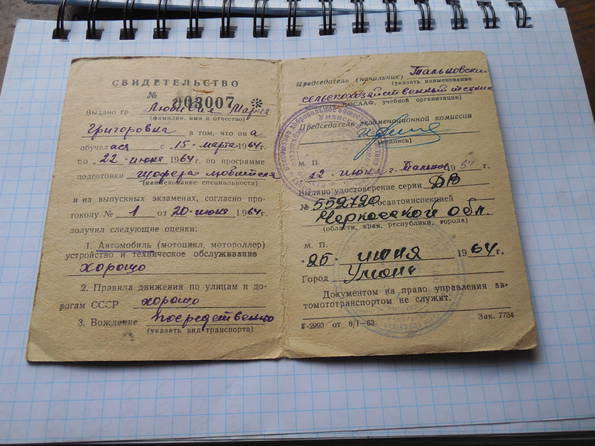 СВИДЕТЕЛЬСТВО
№ 003007 *
Выдано гр. Мария
(фамилия, имя и отчество)
Григоровна в том, что он а
обучался с „15„ марта 1964 г.
по „22„ июня 1964 г. по программе
подготовки шофера любителя
(наименование специальности)
и на выпускных экзаменах, согласно про-
токолу № 1 от 20 июня 1964 г.
получил следующие оценки:
1. Автомобиль (мотоцикл, мотороллер)
устройство и техническое обслуживание
хорошо
2. Правила движения по улицам и до-
рогам СССР хорошо
3. Вождение посредственно
(указать вид транспорта)
Председатель (начальник) Тальновский
(указать наименование
сельскохозяйственный
ДОСААФ, учебной организации)
Председатель экзаменационной комиссии
(подпись)
М. П.
22 июня г. Тальное 1964 г.
Выдано удостоверение серии ДВ
№ 559790 Госавтоинспекцией
Черкасской обл.
(области, края, республики, города)
М. П.
„25„ июня 1964 г.
Город Умань
Документом на право управления ав-
томототранспортом не служит.
Г-2993 от 8/I-63 Зак. 7734